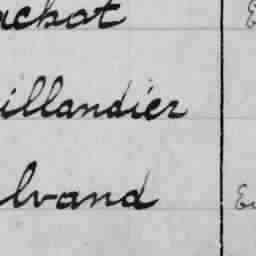 achat
illandier
lvand